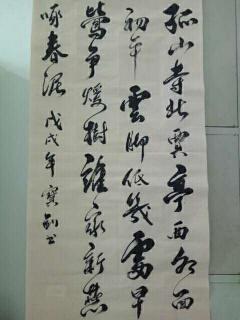 孤山寺北賈亭西水面
初平雲脚低幾處早
鶯爭暖樹誰家新燕
啄春泥戊戌年寶书